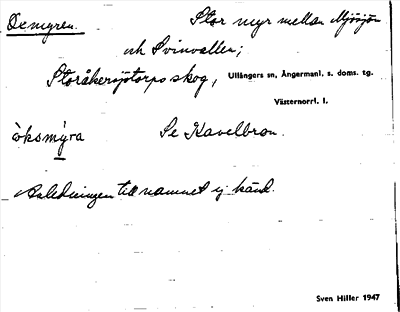 Oxmyren. Stor myr mellan Mjösjön
och Svinvallen;
Storåkersjötorps skog, Ullångers sn, Ångermanl. s. doms. tg.
Västernorrl. l.
òksmỳra Se Kavelbron.
Anledningen till namnet ej känd.
Sven Hiller 1947